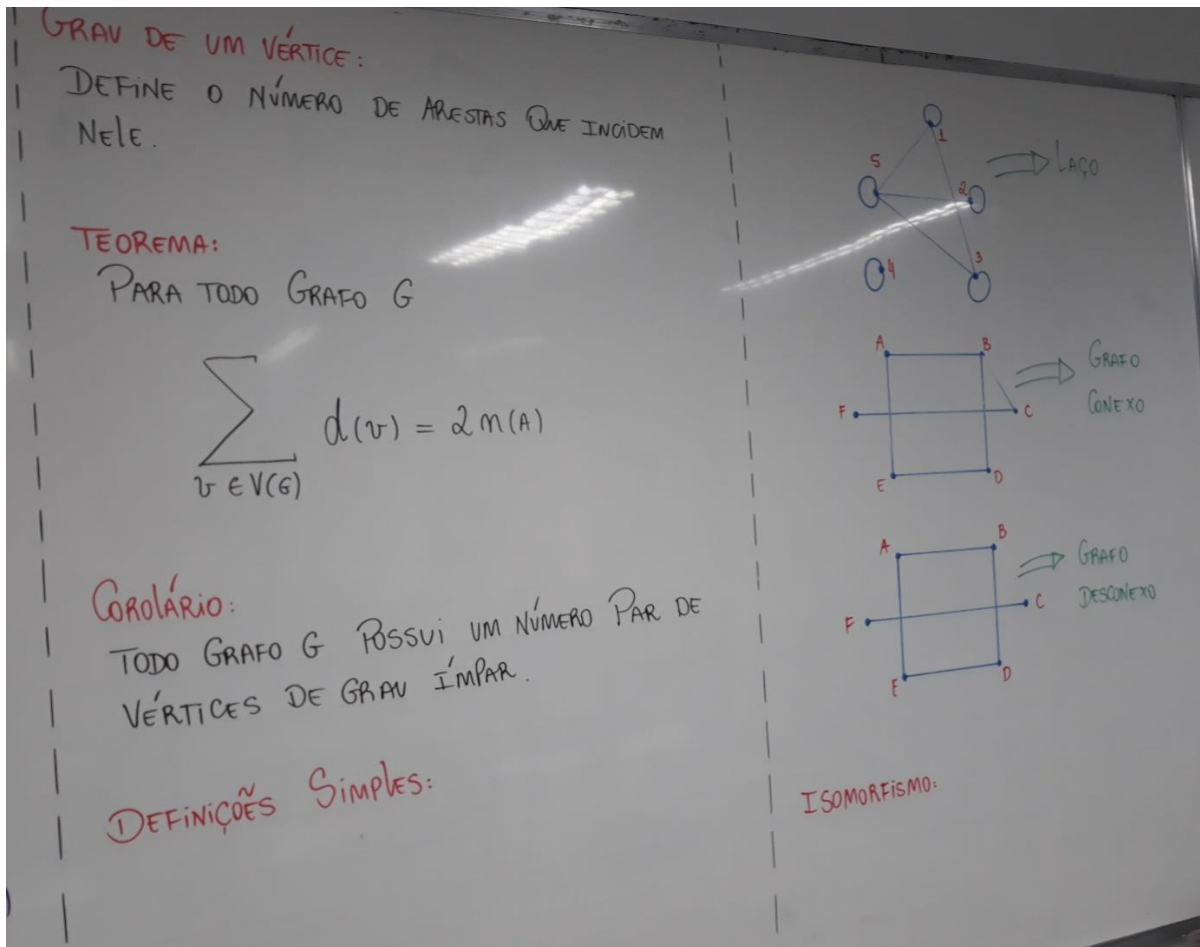 GRAU DE UM VÉRTICE:
DEFINE O NÚMERO DE ARESTAS QUE INCIDEM
NELE.
TEOREMA:
PARA TODO GRAFO G
∑ d(v) = 2n(A)
v ∈ V(G)
COROLÁRIO:
TODO GRAFO G POSSUI UM NÚMERO PAR DE
VÉRTICES DE GRAU ÍMPAR.
DEFINIÇÕES SIMPLES:
1
5
2
LAÇO
4
3
A
B
GRAFO
F
C
CONEXO
E
D
A
B
GRAFO
F
C
DESCONEXO
E
D
ISOMORFISMO: